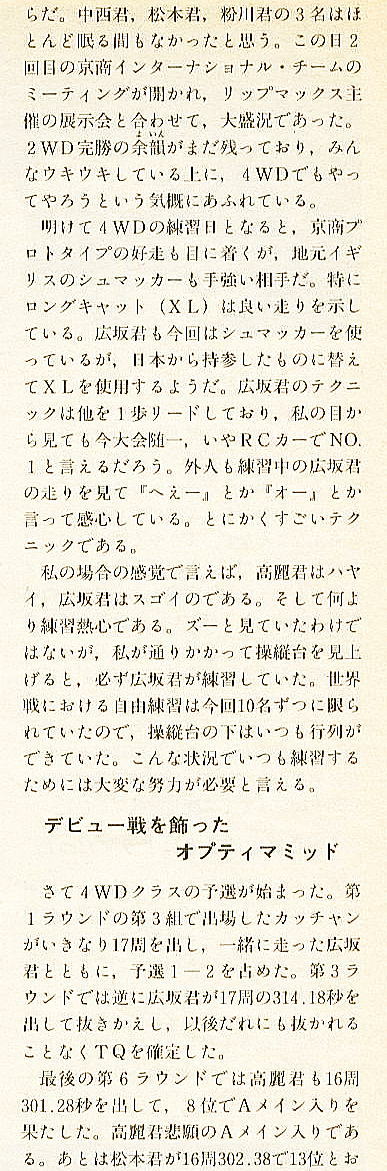 らだ。中西君，松本君，粉川君の３名はほ
とんど眠る間もなかったと思う。この日２
回目の京商インターナショナル・チームの
ミーティングが開かれ，リップマックス主
催の展示会と合わせて，大盛況であった。
２ＷＤ完勝の余韻がまだ残っており，みん
なウキウキしている上に，４ＷＤでもやっ
てやろうという気概にあふれている。
明けて４ＷＤの練習日となると，京商プ
ロトタイプの好走も目に着くが，地元イギ
リスのシュマッカーも手強い相手だ。特に
ロングキャット（ＸＬ）は良い走りを示し
ている。広坂君も今回はシュマッカーを使
っているが，日本から持参したものに替え
てＸＬを使用するようだ。広坂君のテクニ
ックは他を１歩リードしており，私の目か
ら見ても今大会随一，いやＲＣカーでNO.
１と言えるだろう。外人も練習中の広坂君
の走りを見て『へえー』とか『オー』とか
言って感心している。とにかくすごいテク
ニックである。
私の場合の感覚で言えば，高麗君はハヤ
イ，広坂君はスゴイのである。そして何よ
り練習熱心である。ズーと見ていたわけで
はないが，私が通りかかって操縦台を見上
げると，必ず広坂君が練習していた。世界
戦における自由練習は今回10名ずつに限ら
れていたので，操縦台の下はいつも行列が
できていた。こんな状況でいつも練習する
ためには大変な努力が必要と言える。
デビュー戦を飾った
オプティマミッド
さて４ＷＤクラスの予選が始まった。第
１ラウンドの第３組で出場したカッチャン
がいきなり17周を出し，一緒に走った広坂
君とともに，予選１―２を占めた。第３ラ
ウンドでは逆に広坂君が17周の314.18秒を
出して抜きかえし，以後だれにも抜かれる
ことなくＴＱを確定した。
最後の第６ラウンドでは高麗君も16周
301.28秒を出して，８位でＡメイン入りを
果たした。高麗君悲願のＡメイン入りであ
る。あとは松本君が16周302.38で13位とお